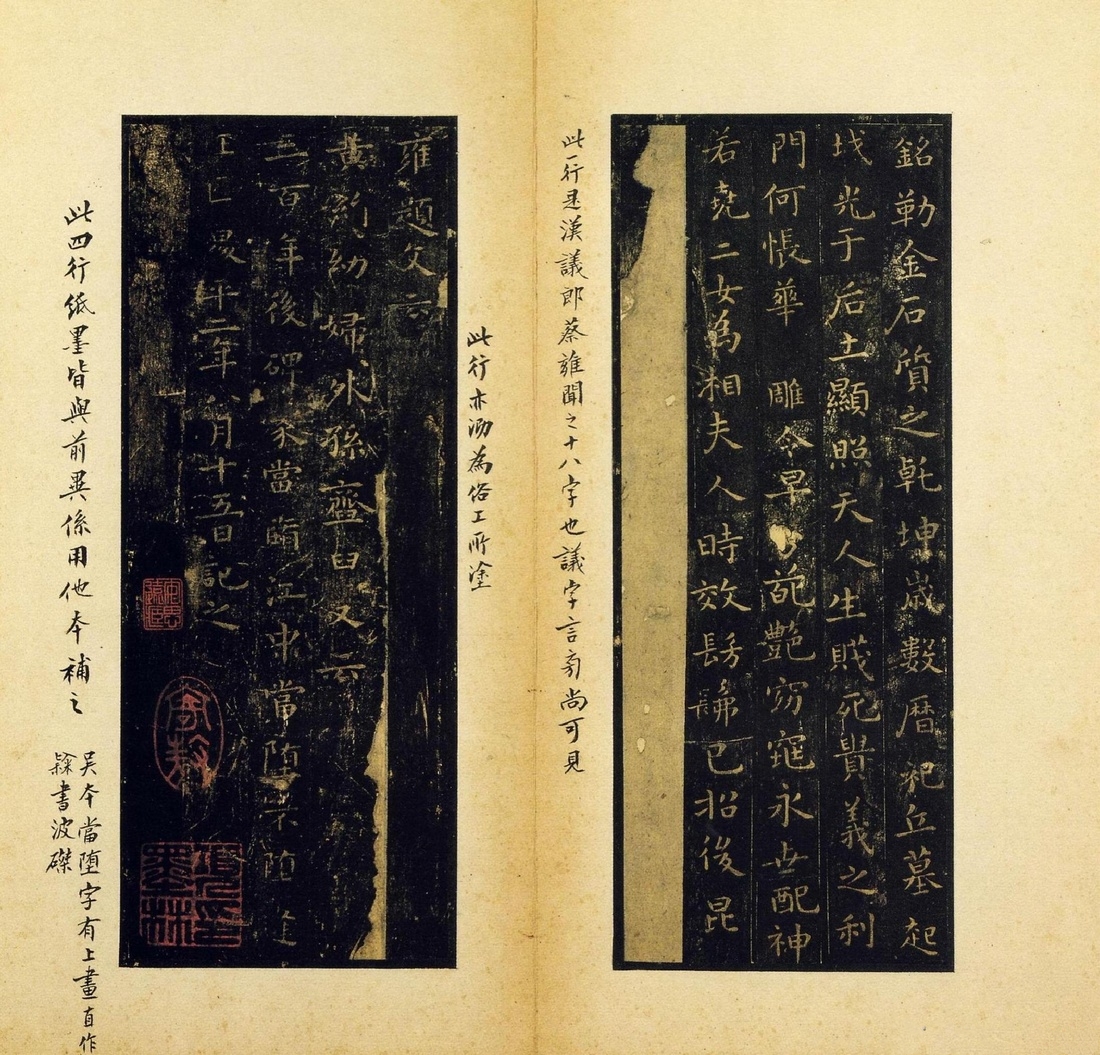 銘勒金石質之乾坤歲數曆祀丘墓起
墳光于后土顯照天人生賤死貴義之利
門何悵華雕令早艷窈窕永世配神
若堯二女為湘夫人時效髣髴已招後昆
此一行是漢議郎蔡雍聞之十八字也議字言旁尚可見
此行亦泐為俗工所塗
雍題文云
黃絹幼婦外孫齏臼又云
三百年後碑當江中當堕不堕
十二年八月十五日記之
此四行紙墨皆與前異係用他本補之
吳本當堕字有上畫直作
隸書波磔